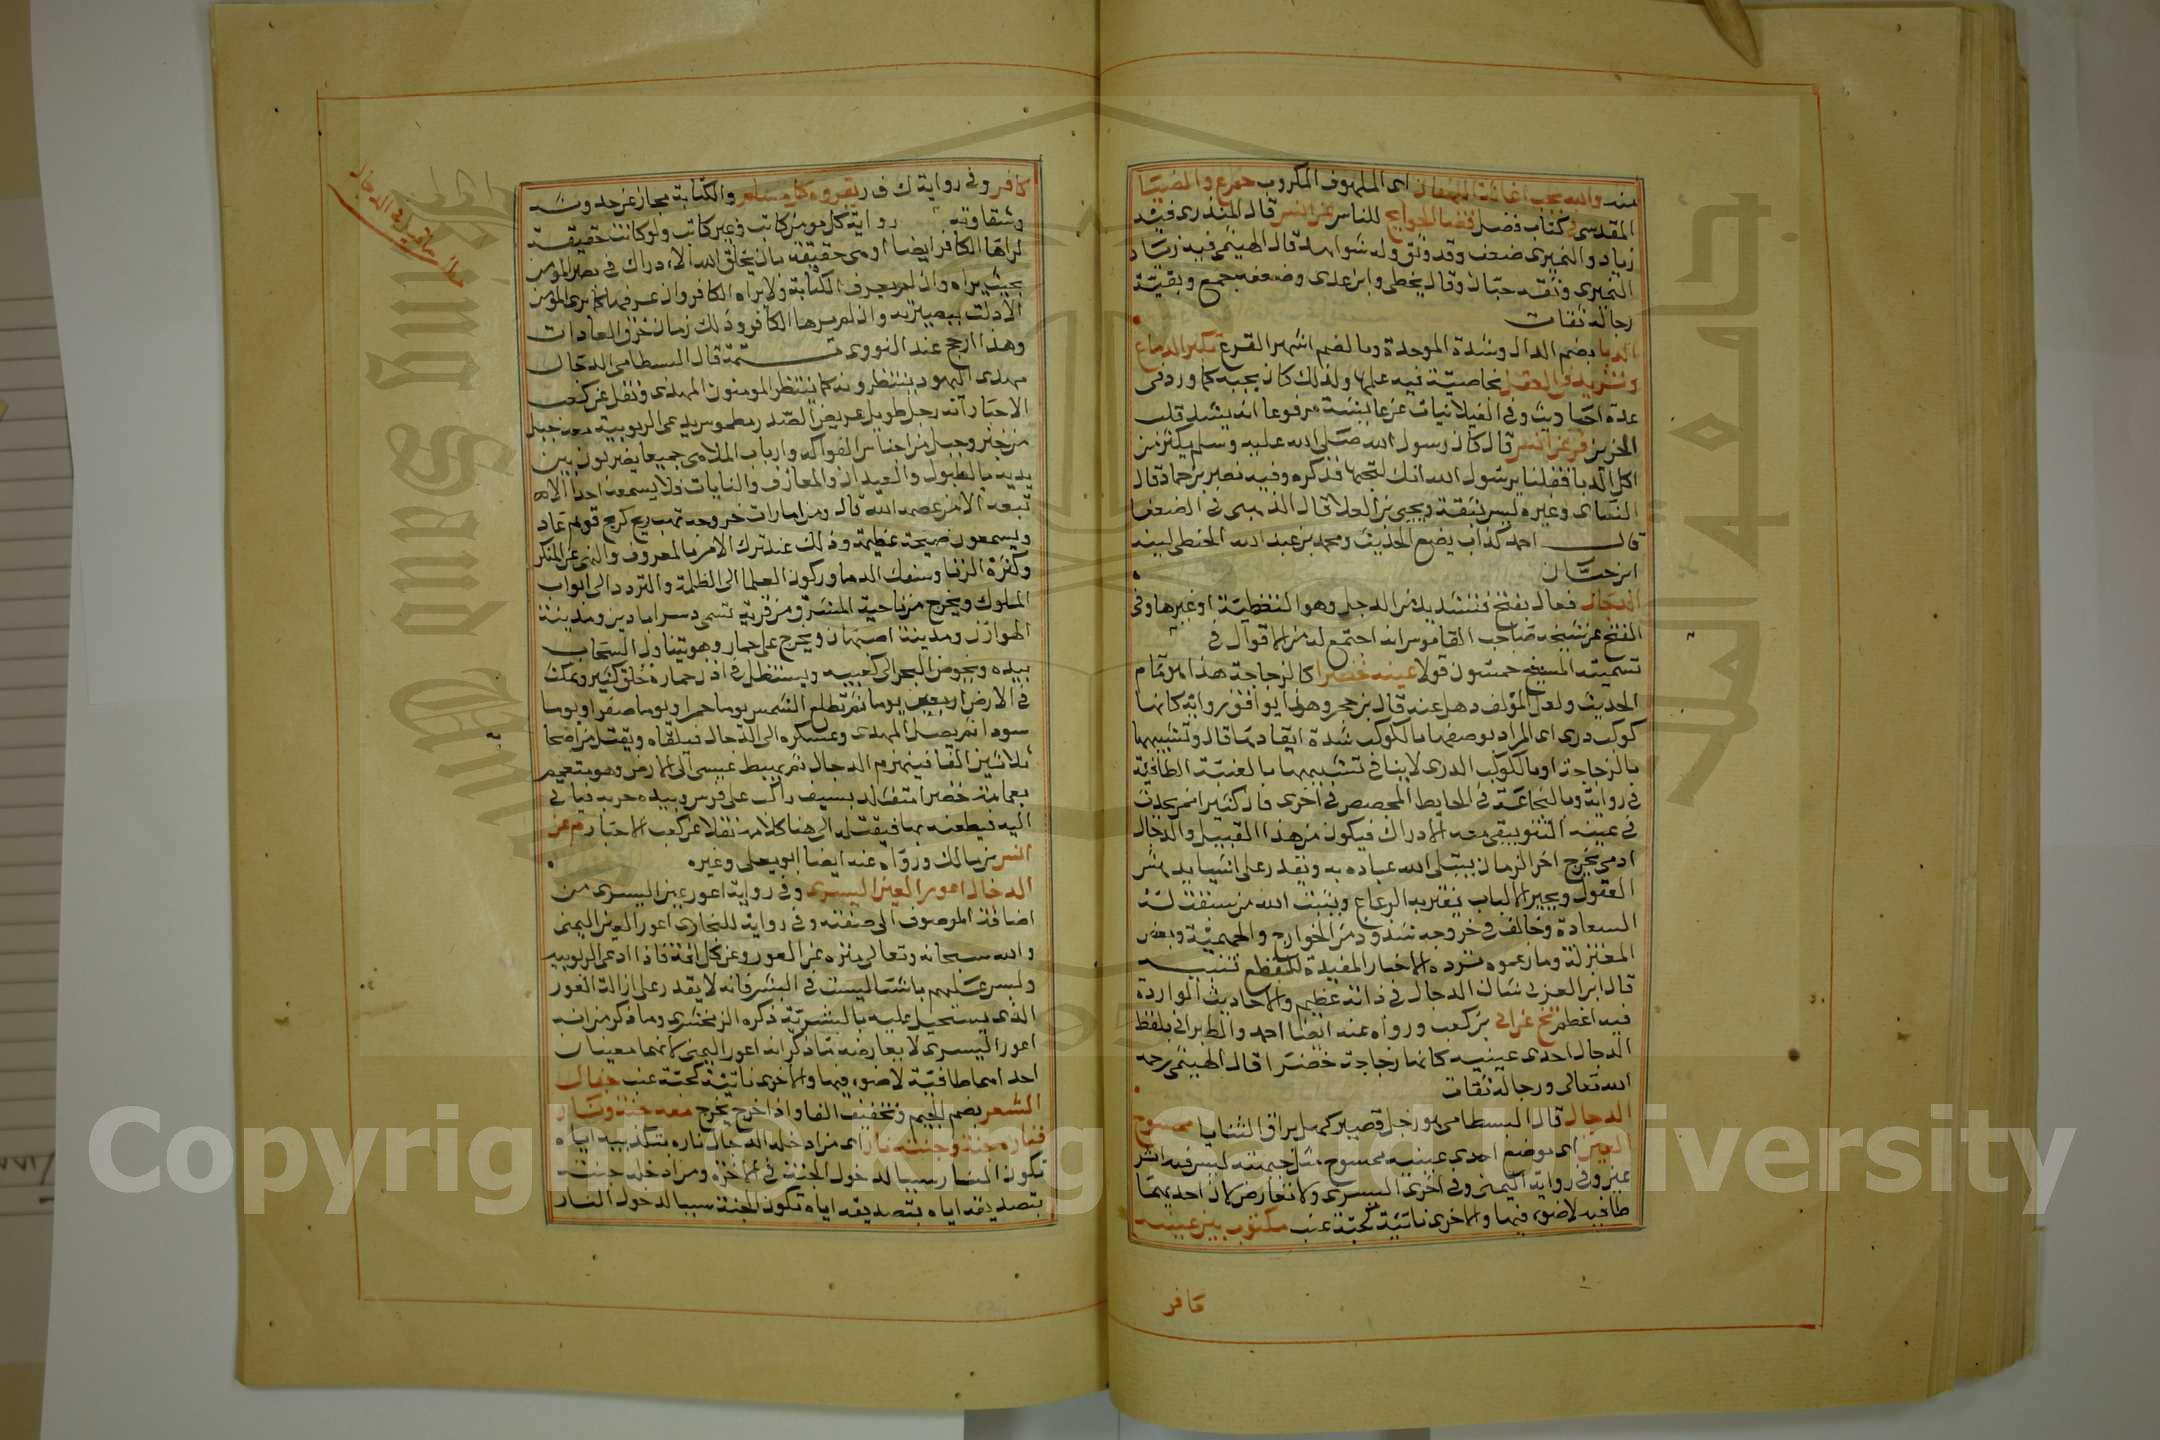 منه والله يحب اغاثة اللهفان اى الملهوف المكروب حم ع والضيا
المقدسى فى كتاب فضل قضا الحوايج للناس عن انس قال المنذرى فيه
زياد والنميرى ضعف وقد وثق وله شواهد قال الهيثمى فيه زياد
النميرى وثقه حبان وقال يخطى وابن عدى وضعفه جمع وبقية
رجاله ثقات
الدبا بضم الدال وشدة الموحدة وبالضم اشهر القرع تكبر الدماغ
وتزيد فى العقل بخاصية فيه علمها ولذلك كان يحبه كما ورد فى
عدة احاديث وفى الغيلانيات عن عائشة مرفوعا انه يشد قلب
الحزين فر عن انس قال كان رسول الله صلى الله عليه وسلم يكثر من
اكل الدبا فقلنا يرسول الله انك لتحبها فذكره وفيه نصر بن حماد قال
النساى وغيره ليس بثقة ويحيى بن العلا قال الذهبى فى الضعفا
قال احمد كذاب يضع الحديث ومحمد بن عبد الله الحنطى لينه
ابن حبان
الدجال فعال بفتح فتشديد من الدجل وهو التغطية او غيرها وفى
الفتح عن شيخه صاحب القاموس انه اجتمع له من الاقوال فى
تسمية المسيح خمسون قولا عينه خضرا كالزجاجة هذا من تمام
الحديث ولعل المؤلف ذهل عنه قال بن حجر وهو لما يوافق رواية كانها
كوكب درى اى المراد بوصفها بالكوكب شدة ايقادها قال وتشبيهها
بالزجاجة او بالكوكب الدرى لا ينافى تشبيهها بالعنبة الطافية
فى رواية وبالنخاعة فى الحايط المجصص فى اخرى فان كثيرا ممن يحدث
فى عينه النتو يبقى معه الادراك فيكون من هذا القبيل والدجال
ادمى يخرج اخر الزمان يبتلى الله عباده به ويقدر على اشيا
العقول ويحير الالباب يغتر به الرعاع ويثبت الله من سبقت له
السعادة وخالف فى خروجه شذوذ من الخوارج والجهمية وبعض
المعتزلة وما زعموه ترده الاخبار المفيدة للقطع تنبيه
قال ابن العربى شان الدجال فى ذاته عظيم والاحاديث الواردة
فيه اعظم تخ عن ابى بن كعب ورواه عنه ايضا احمد والطبرانى بلفظ
الدجال احدى عينيه كانها زجاجة خضرا قال الهيثمى رحمه
الله تعالى ورجاله ثقات
الدجال قال البسطامى هو رجل قصير كهل براق الثنايا ممسوح
العين اى موضع احدى عينيه ممسوح مثل جبهته ليس فيه اثر
عين وفى رواية اليمنى وفى اخرى اليسرى ولا تعارض لان احديهما
طافيه لا ضوء فيها والاخرى ناتئة كحبة عنب مكتوب بين عينيه
كافر
كافر وفى رواية ك ف ر يقروه كل مسلم والكتابة مجاز عن حدوثه
وشقاوته رواية كل مومن كاتب وغير كاتب ولو كانت حقيقة
لراها الكافر ايضا او هى حقيقة بان يخلق الله الادراك فى بصر المومن
بحيث يراه وان لم يعرف الكتابة ولا يراه الكافر وان عرفها كما يرى المومن
الادلة ببصيرته وان لم يرها الكافر وذلك زمان خرق العادات
وهذا ارجح عند النووى تتمة قال البسطامى الدجال
مهدى اليهود ينتظرونه كما ينتظر المومنون المهدى ونقل عن كعب
الاحبار انه رجل طويل عريض الصدر مطموس يدعى الربوبية معه جبل
من خبز وجبل من اجناس الفواكه وارباب الملاهى جميعا يضربون بين
يديه بالطبول والعيدان والمعازف والنايات فلا يسمعه احد الا
تبعه الا من عصمه الله قال ومن امارات خروجه تهب ريح كريح قوم عاد
ويسمعون صيحة عظيمة وذلك عند ترك الامر بالمعروف والنهى عن المنكر
وكثرة الزنا وسفك الدما وركون العلما الى الظلمة والتردد الى ابواب
الملوك ويخرج من ناحية المشرق من قرية تسمى دسرابادين ومدينة
الهوازن ومدينة اصبهان ويخرج على حمار وهو يتناول السحاب
بيده ويخوض البحر الى كعبيه ويستظل فى اذن حماره خلق كثير ويمكث
فى الارض اربعين يوما ثم تطلع الشمس يوما حمرا ويوما صفرا ويوما
سودا ثم يصل المهدى وعسكره الى الدجال فيلقاه ويقتل من اصحابه
ثلاثين الفا فينهزم الدجال ثم يهبط عيسى الى الارض وهو متعمم
بعمامة خضرا متقلد بسيف راكب على فرس وبيده حربه فياتى
اليه فيطعنه بها فيقتله الى هنا كلامه نقلا عن كعب الاحبار م عن
انس بن مالك ورواه عنه ايضا ابو يعلى وغيره
الدجال اعور العين اليسرى وفى رواية اعور عين اليسرى من
اضافة الموصوف الى صفته وفى رواية للبخارى اعور العين اليمنى
والله سبحانه وتعالى منزه عن العور وعن كل افة فاذا ادعى الربوبيه
ولبس عليهم باشيا ليست فى البشر فانه لا يقدر على ازالة العور
الذى يستحيل عليه بالبشرية ذكره الزمخشرى وما ذكر من انه
اعور اليسرى لا يعارضه ما ذكر انه اعور اليمنى لانهما معيبتان
احداهما طافية لا ضوء فيها والاخرى ناتئة كحبة عنب جفال
الشعر بضم الجيم وتخفيف الفا واذا خرج يخرج معه جنة ونار
فناره جنة وجنته نار اى من ادخله الدجال ناره بتكذيبه اياه
تكون النار سببا لدخول الجنة فى الاخرة ومن ادخله جنته
بتصديقه اياه بتصديقه اياه تكون الجنة سببا لدخول النار
Copyright © King Saud University